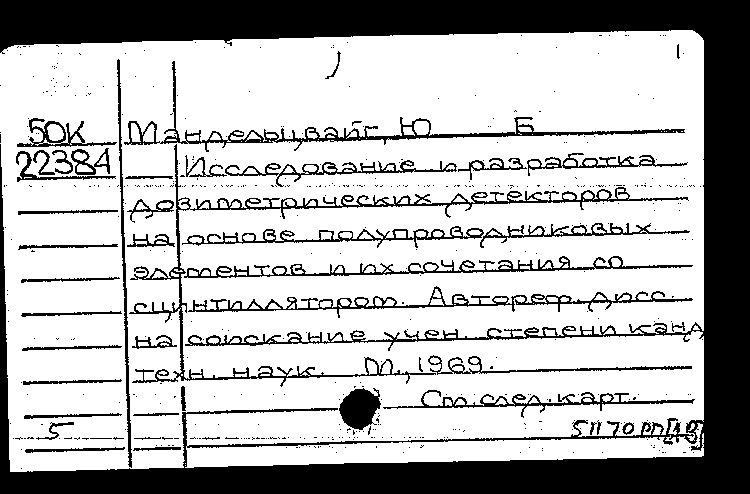 1
50К Мандельцвайг, Ю Б
22384 Исследование и разработка
дозиметрических детекторов
на основе полупроводниковых
элементов и их сочетания со
сцинтиллятором. Автореф. дисс.
на соискание учен. степени канд
техн. наук. М., 1969.
См. след. карт.
5 51170